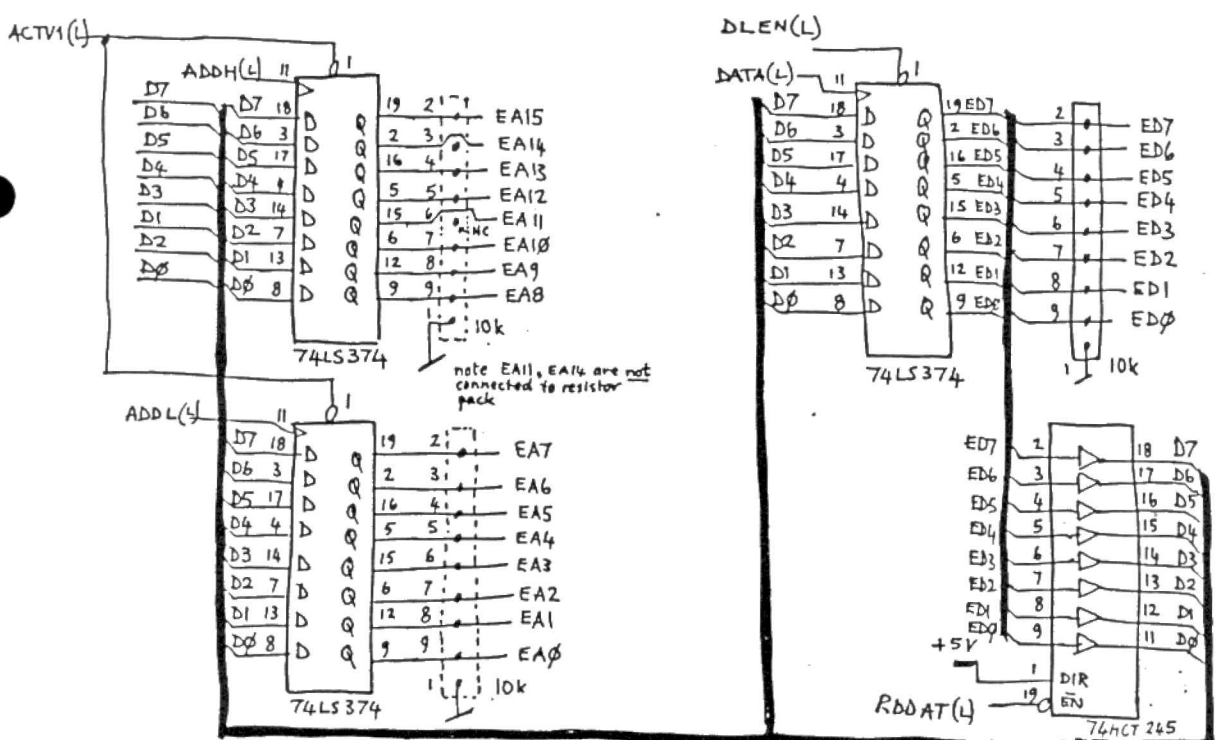 ACTV1(L)
ADDH(L) 11
1
D7
D6
D5
D4
D3
D1
D2
DØ
D7 18 D Q 19 2 EA15
D6 3 D Q 2 3 EA14
D5 17 D Q 16 4 EA13
D4 D Q 5 5 EA12
D3 14 D Q 15 6 EA11
NC
D2 7 D Q 6 7 EA1Ø
D1 13 D Q 12 8 EA9
DØ 8 D Q 9 9 EA8
10k
74LS374
note EA11, EA14 are not
connected to resistor
pack
ADDL(L) 11
1
D7 18 D Q 19 2 EA7
D6 3 D Q 2 3 EA6
D5 17 D Q 16 4 EA5
D4 4 D Q 5 5 EA4
D3 14 D Q 15 6 EA3
D2 7 D Q 6 7 EA2
D1 13 D Q 12 8 EA1
DØ 8 D Q 9 9 EAØ
1 10k
74LS374
DLEN(L)
1
DATA(L) 11
D7 18 D Q 19 ED7 2 ED7
D6 3 D Q 2 ED6 3 ED6
D5 17 D Q 16 ED5 4 ED5
D4 4 D Q 5 ED4 5 ED4
D3 14 D Q 15 ED3 6 ED3
D2 7 D Q 6 ED2 7 ED2
D1 13 D Q 12 ED1 8 ED1
DØ 8 D Q 9 9 EDØ
1 10k
74LS374
ED7 2 18 D7
ED6 3 17 D6
ED5 4 16 D5
ED4 5 15 D4
ED3 6 14 D3
ED2 7 13 D2
ED1 8 12 D1
EDØ 9 11 DØ
+5V
1 DIR
RDDAT(L) 19 EN
74HCT 245